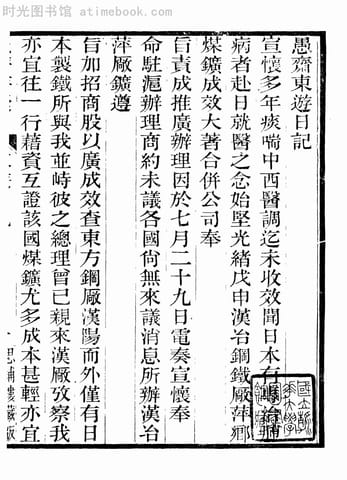 时光图书馆 atimebook.com
愚齋東遊日記
宣懷多年痰喘中西醫調迄未收效聞日本有
病者赴日就醫之念始堅光緒戊申漢冶鋼鐵廠萍鄉
煤鑛成效大著合併公司奉
旨責成推廣辦理因於七月二十九日電奏宣懷奉
命駐滬辦理商約未議各國尙無來議消息所辦漢冶
萍廠鑛遵
旨加招商股以廣成效查東方鋼廠漢陽而外僅有日
本製鐵所與我並峙彼之總理曾已親來漢厰攷察我
亦宜往一行藉資互證該國煤鑛尤多成本甚輕亦宜
思補樓藏版